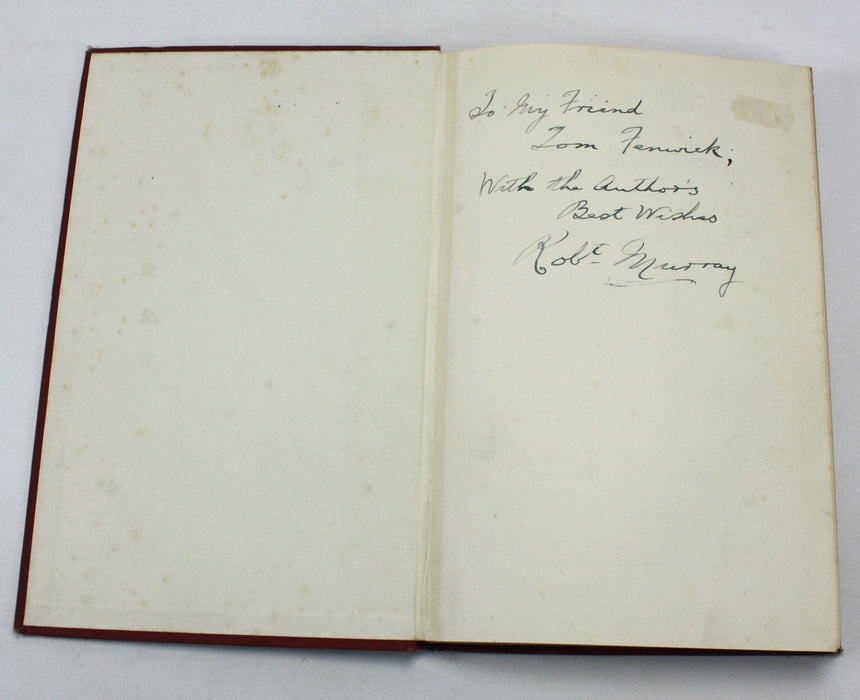 To My Friend
Tom Fenwick;
With the Author's
Best Wishes
Robt Murray